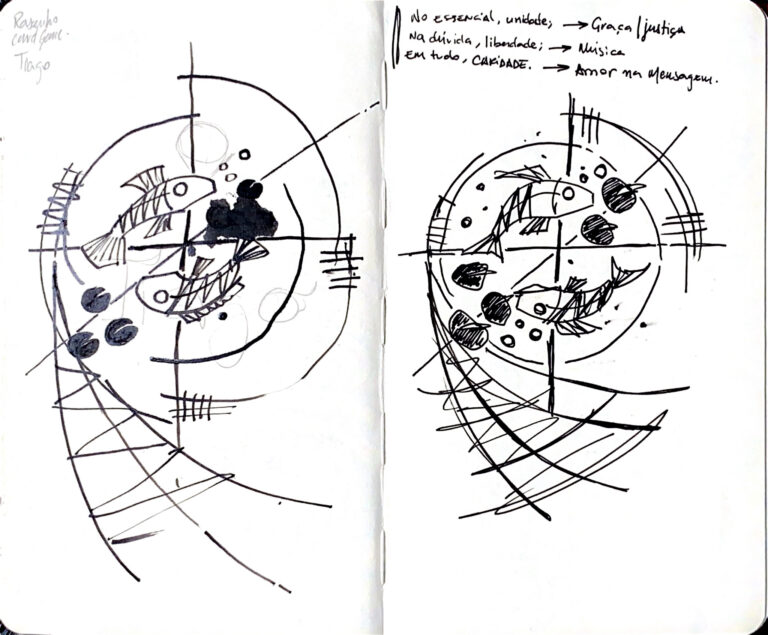 Tiago
No essencial, unidade; → Graça/justiça
Na dúvida, liberdade; → Música
Em tudo, CARIDADE. → Amor na Mensagem.